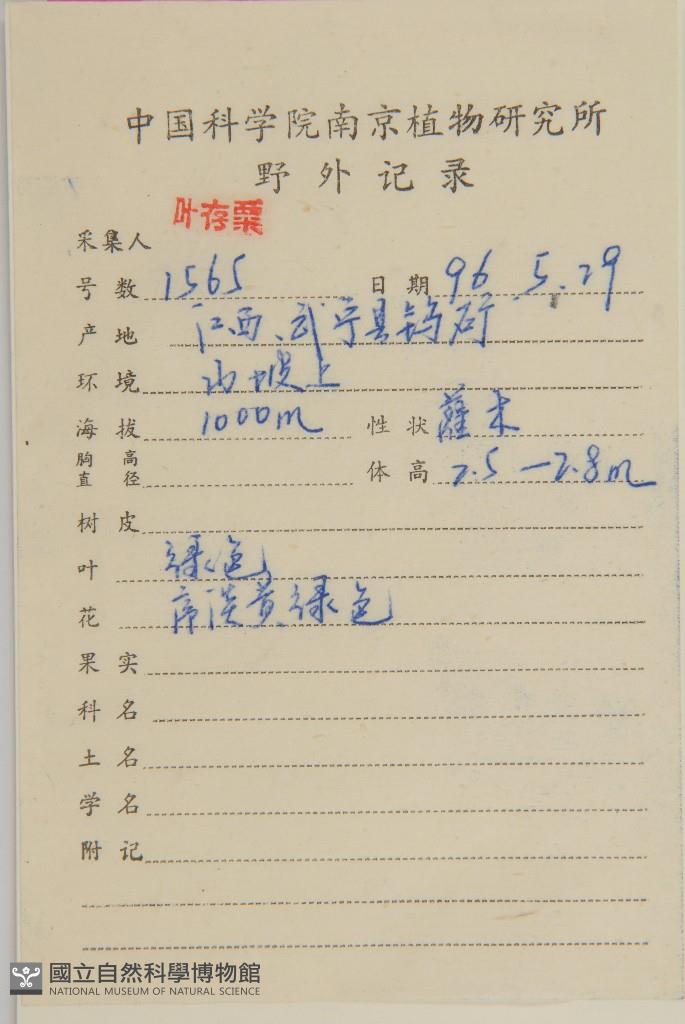 中国科学院南京植物研究所
野外记录
采集人 叶存粟
号数 1565 日期 96.5.29
产地 江西、武宁县钨矿
环境 山坡上
海拔 1000m 性状 蘿木
胸高直径 体高 2.5—2.8m
树皮
叶 绿色
花 序淡黄绿色
果实
科名
土名
学名
附记
國立自然科學博物館
NATIONAL MUSEUM OF NATURAL SCIENCE